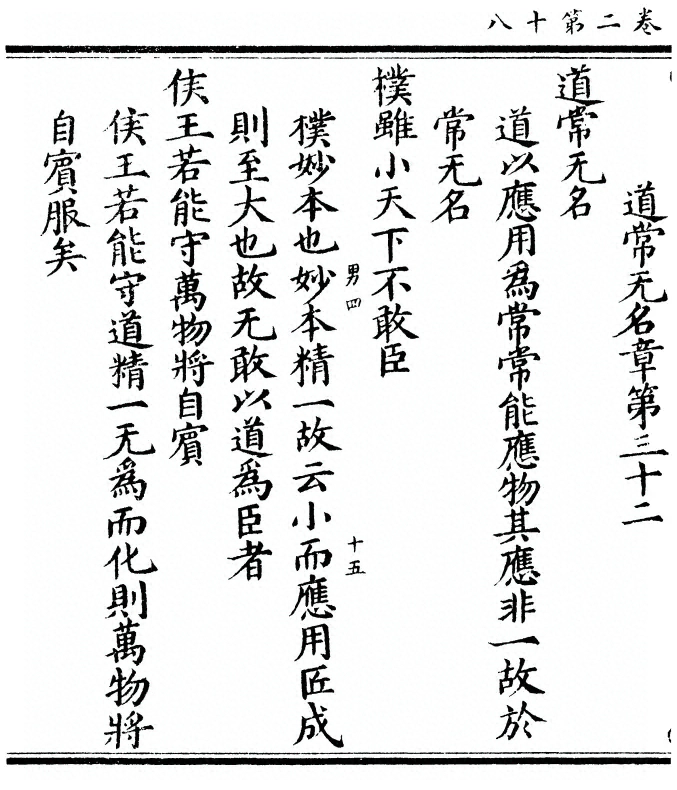 卷二第十八
道常无名章第三十二
道常无名
道以應用爲常常能應物其應非一故於
常无名
樸雖小天下不敢臣
男四
十五
樸妙本也妙本精一故云小而應用匠成
則至大也故无敢以道爲臣者
侯王若能守萬物將自賓
侯王若能守道精一无爲而化則萬物將
自賓服矣